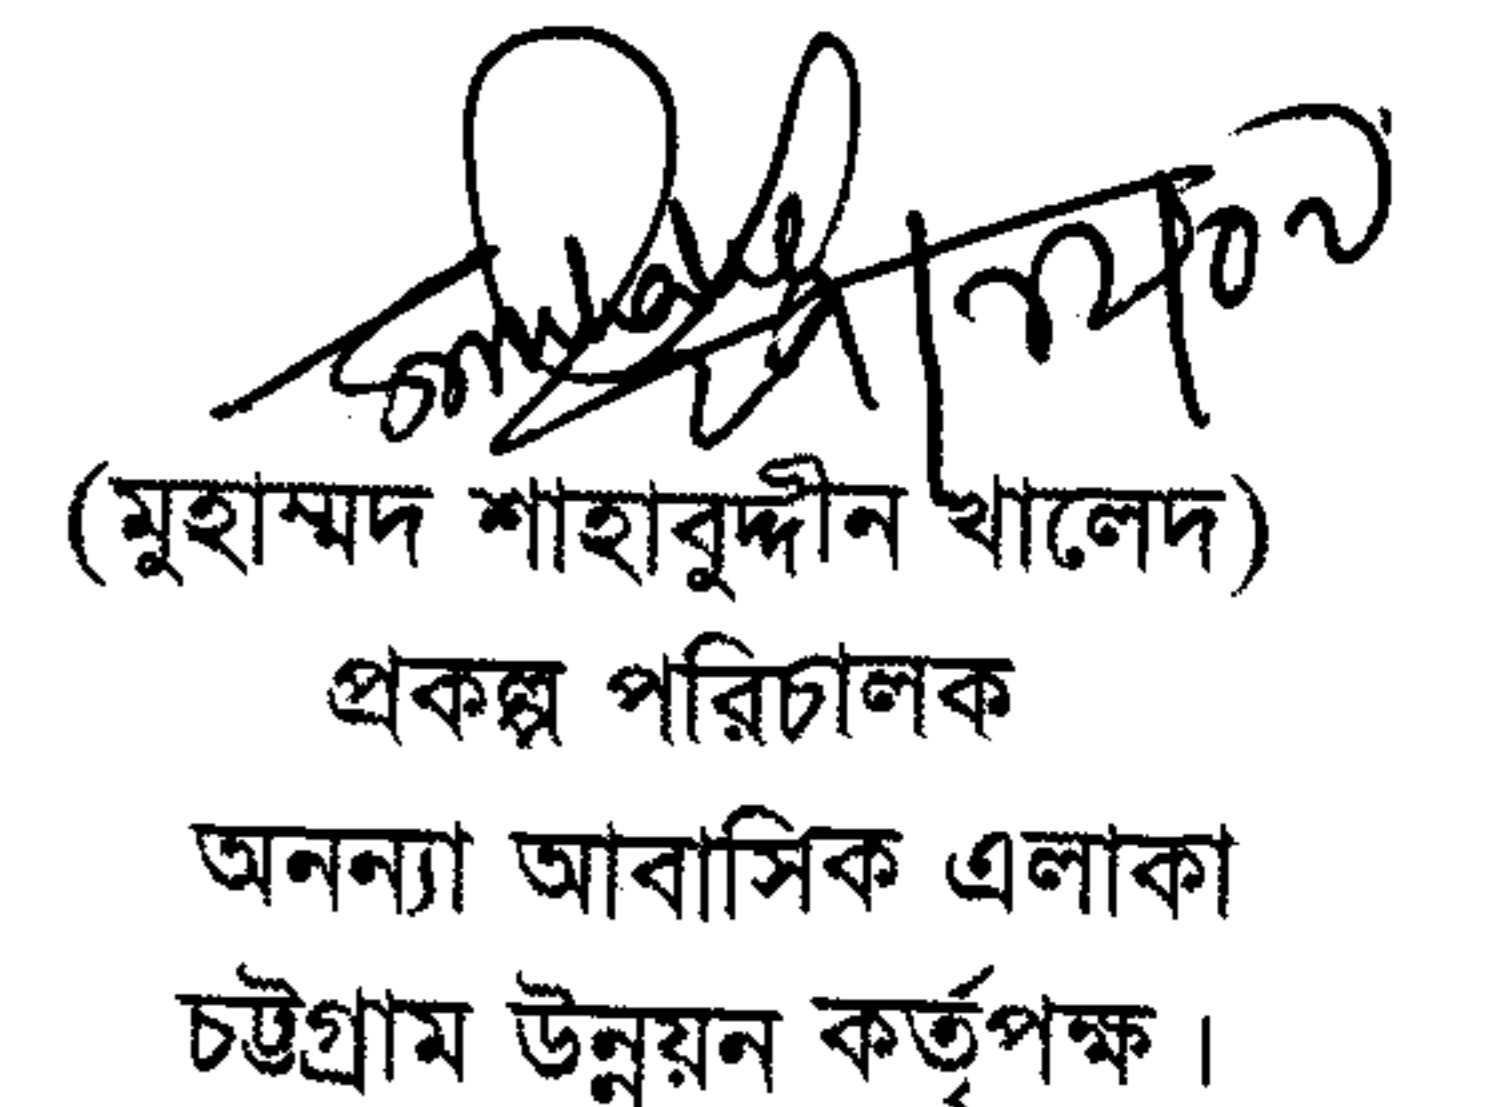 (মুহাম্মদ শাহাবুদ্দীন খালেদ)
প্রকল্প পরিচালক
অনন্যা আবাসিক এলাকা
চট্টগ্রাম উন্নয়ন কর্তৃপক্ষ।